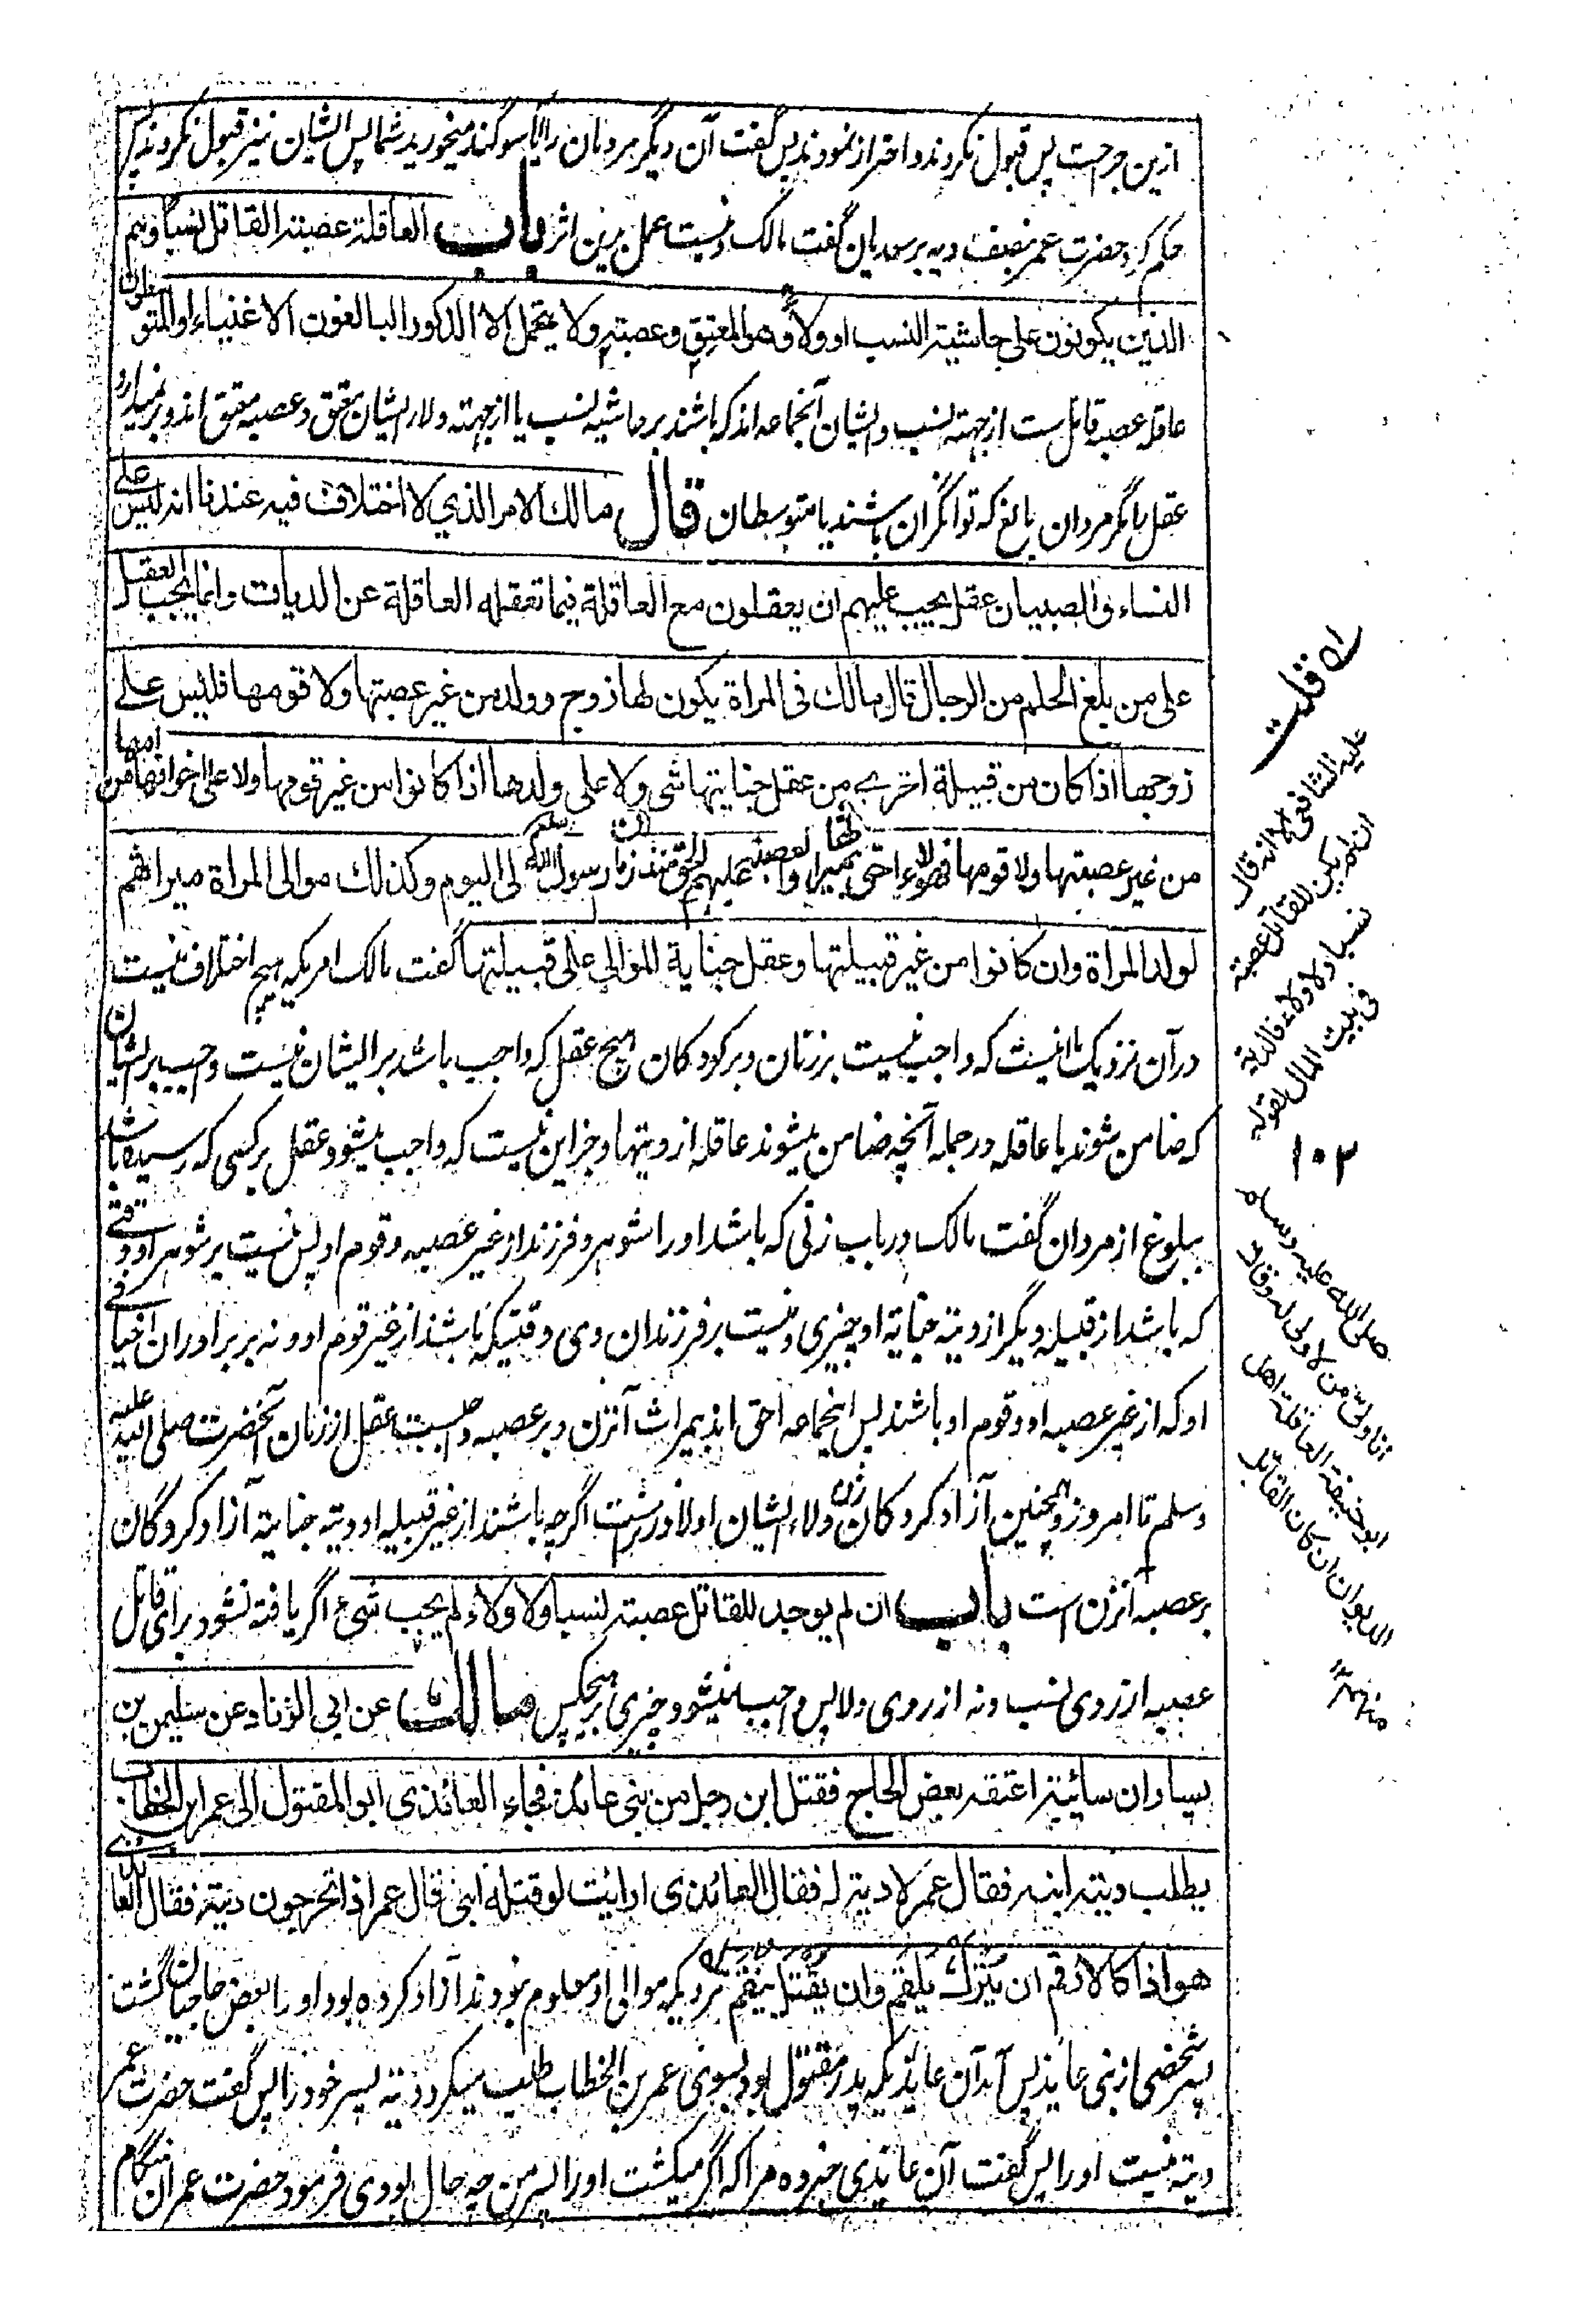 ازین جرحت پس قبول نکردند و احتراز نمودند پس گفت آن دیگر مردمان را آیا سوگند میخورید شما پس ایشان نیز قبول نکردند پس
حکم کرد حضرت عمر بنصف دیه بر سعدیان گفت مالک و نیست عمل برین اثر باب العاقلة عصبة القاتل نسبا وهم
الذین یکونون علی حاشیة النسب او ولاء وهو المعتق وعصبته ولا یتحمل الا الذکور البالغون الاغنیاء او المتوسطون
عاقله عصبه قاتل ست از جهته نسب و ایشان آنجماعه اند که باشند بر حاشیه نسب یا از جهته ولا و ایشان معتق و عصبه معتق اند و برنمیدارد
عقل را مگر مردان بالغ که توانگران باشند یا متوسطان قال مالك الامر الذي لا اختلاف فیه عندنا انه لیس علی
النساء والصبیان عقل یجب علیهم ان یعقلون مع العاقلة فیما تعقله العاقلة عن الدیات وانما یجب العقل
علی من بلغ الحلم من الرجال قال مالك فی المراة یکون لها زوج وولد من غیر عصبتها ولا قومها فلیس علی
زوجها اذا کان من قبیلة اخرے من عقل جنایتها شی ولا علی ولدها اذا کانوا من غیر قومها ولا علی اخوانها من امها
من غیر عصبتها ولا قومها فهولاء احق بمیراثها والعصبة علیهم العقل منذ زمان رسول الله صلعم الی الیوم وکذلك موالی المراة میراثهم
لولد المراة وان کانوا من غیر قبیلتها وعقل جنایة الموالی علی قبیلتها گفت مالک امریکه هیچ اختلاف نیست
در آن نزدیک ما انیست که واجب نیست بر زنان و بر کودکان هیچ عقل که واجب باشد بر ایشان نیست واجب بر ایشان
که ضامن شوند با عاقله در جمله آنچه ضامن میشوند عاقله از دیتها و جز این نیست که واجب میشود عقل بر کسی که رسیده باشد
ببلوغ از مردان گفت مالک در باب زنی که باشد او را شوهر و فرزند از غیر عصبه و قوم او پس نیست بر شوهر او وقتے
که باشد از قبیله دیگر از دیته جنایة او چیزی و نیست بر فرزندان وی وقتیکه باشند از غیر قوم او و نه بر برادران اخیافے
او که از غیر عصبه او و قوم او باشند پس اینجماعه احق اند بمیراث آنزن و بر عصبه واجبست عقل از زمان آنحضرت صلی الله علیه
وسلم تا امروز و همچنین آزاد کردگان زن ولاء ایشان اولاد زنست اگرچه باشند از غیر قبیله او و دیته جنایة آزاد کردگان
بر عصبه آنزن است باب ان لم یوجد للقاتل عصبة نسبا ولا ولاء لم یجب شیء اگر یافته نشود برای قاتل
عصبه از روی نسب و نه از روی ولا پس واجب نمیشود چیزی بر هیچکس مالك عن ابی الزناد عن سلیمن بن
یسار ان سائبة اعتقه بعض الحاج فقتل ابن رجل من بنی عائذ فجاء العائذی ابو المقتول الی عمر ابن الخطاب
یطلب دیة ابنه فقال عمر لا دیة له فقال العائذی ارایت لو قتله ابنی قال عمر اذا تخرجون دیته فقال العائذی
هو اذا کالارقم ان یترك یلقم وان یقتل ینقم مردیکه موالی او معلوم نبودند آزاد کرده بود او را بعض حاجیان گشت
پسر شخصی از بنی عایذ پس آمد آن عایذیکه پدر مقتول بود بسوی عمر بن الخطاب طلب میکرد دیته پسر خود را پس گفت حضرت عمر
دیته نیست او را پس گفت آن عایذی خبر ده مرا که اگر میکشت او را پسر من چه حال بودی فرمود حضرت عمر آن هنگام
قلت
علیه الشافعی الا انه قال
ان لم یکن للقاتل عصبة
نسبا ولا ولاء فالدیة
فی بیت المال لقوله
۱۰۲
صلی الله علیه وسلم
انا ولی من لا ولی له وقال
ابو حنیفة العاقلة اهل
الدیوان ان کان القاتل
منهم ۱۲